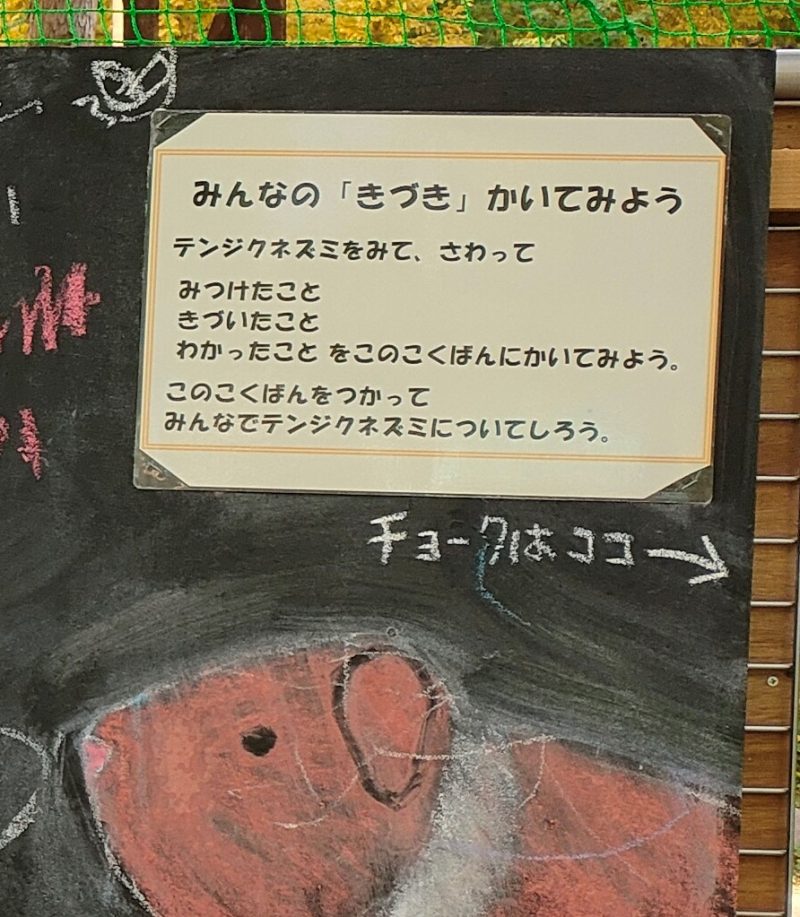 みんなの「きづき」かいてみよう
テンジクネズミをみて、さわって
みつけたこと
きづいたこと
わかったこと をこのこくばんにかいてみよう。
このこくばんをつかって
みんなでテンジクネズミについてしろう。
チョークはココ→